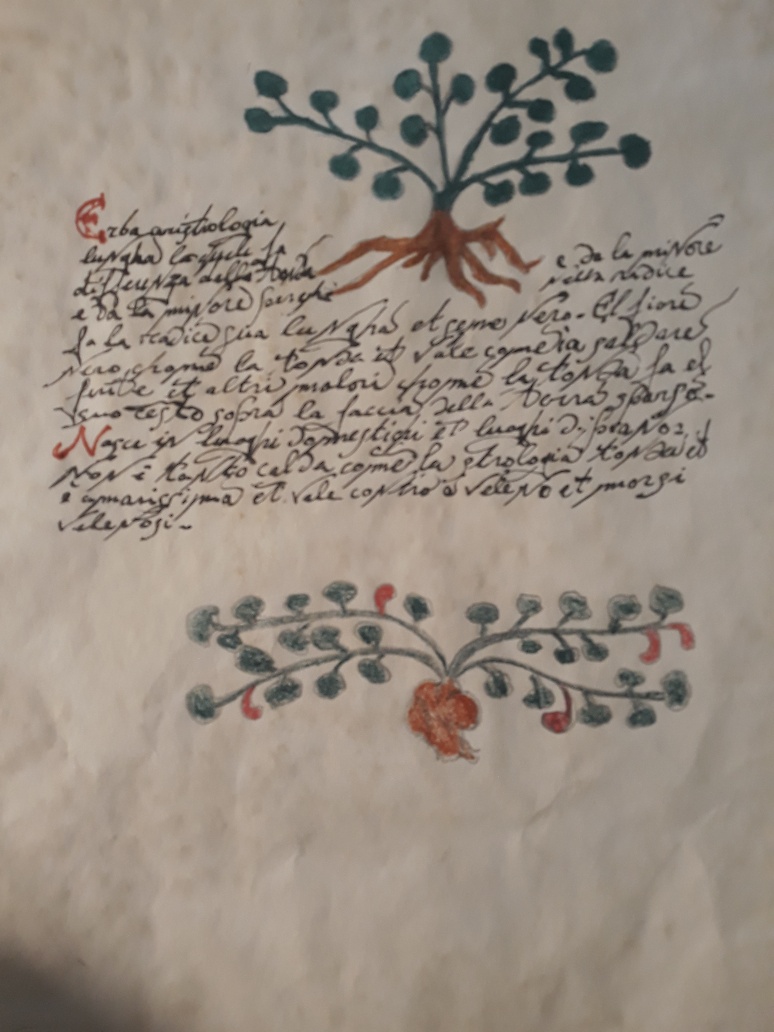 Erba aristologia
lungha la quale fa
differenza della tonda e da la minore
e da la minore perchè nella radice
fa la radice sua lungha et seme nero. El fiore
nero chome la tonda et vale come ia saldare
et altri malori chome la tonda fa el
suo cesto sopra la faccia della terra
Nasce in luoghi domestichi et luoghi
Non è tanto calda come la strologia tonda et
è amarissima et vale contro a veleno et morsi
velenosi.